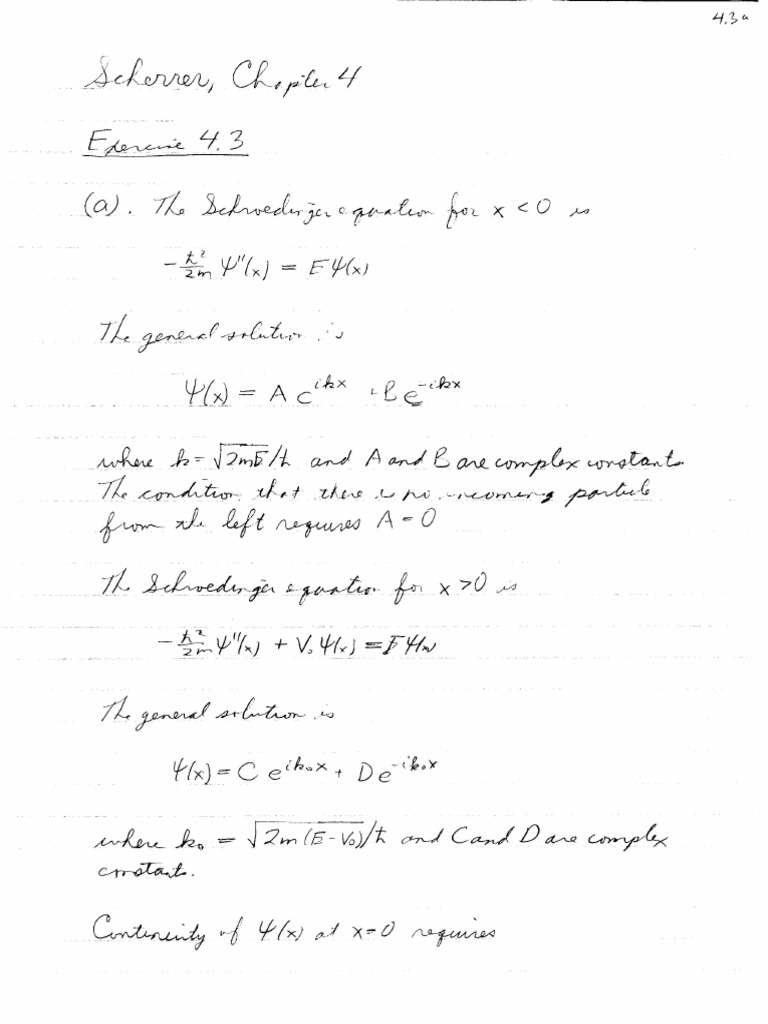 4.3a
Scherrer, Chapter 4
Exercise 4.3
(a). The Schroedinger equation for x < 0 is
-ħ²/2m Ψ''(x) = E Ψ(x)
The general solution is
Ψ(x) = A e^{ikx} + B e^{-ikx}
where k = √2mE/ħ and A and B are complex constants.
The condition that there is no incoming particle
from the left requires A = 0
The Schroedinger equation for x > 0 is
-ħ²/2m Ψ''(x) + V₀ Ψ(x) = E Ψ(x)
The general solution is
Ψ(x) = C e^{ik₀x} + D e^{-ik₀x}
where k₀ = √2m(E-V₀)/ħ and C and D are complex
constants.
Continuity of Ψ(x) at x=0 requires